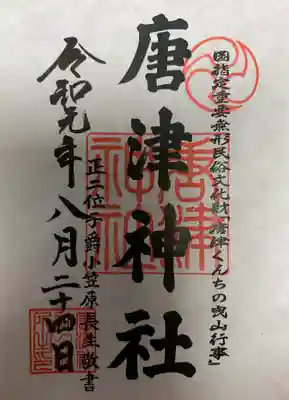 国指定重要無形民俗文化財「唐津くんちの曳山行事」
唐津神社
正二位子爵小笠原長生敬書
令和元年八月二十四日
唐津
神社